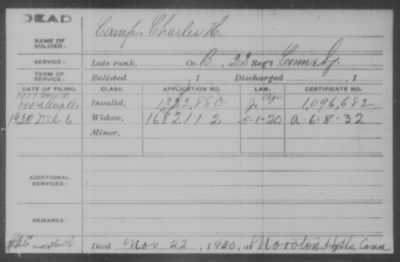 DEAD
NAME OF SOLDIER: Camp, Charles H.
SERVICE: Late rank, Co. B, 22 Reg't Conn. Inf.
TERM OF SERVICE: Enlisted , 1 Discharged , 1
DATE OF FILING. CLASS. APPLICATION NO. LAW. CERTIFICATE NO.
Invalid, 1322,880 1,096,682
1930 Dec 6 Widow, 1682112 5-1-20 a-6-8-32
Minor,
ADDITIONAL SERVICES:
REMARKS:
Died Nov 22, 1930, at Conn